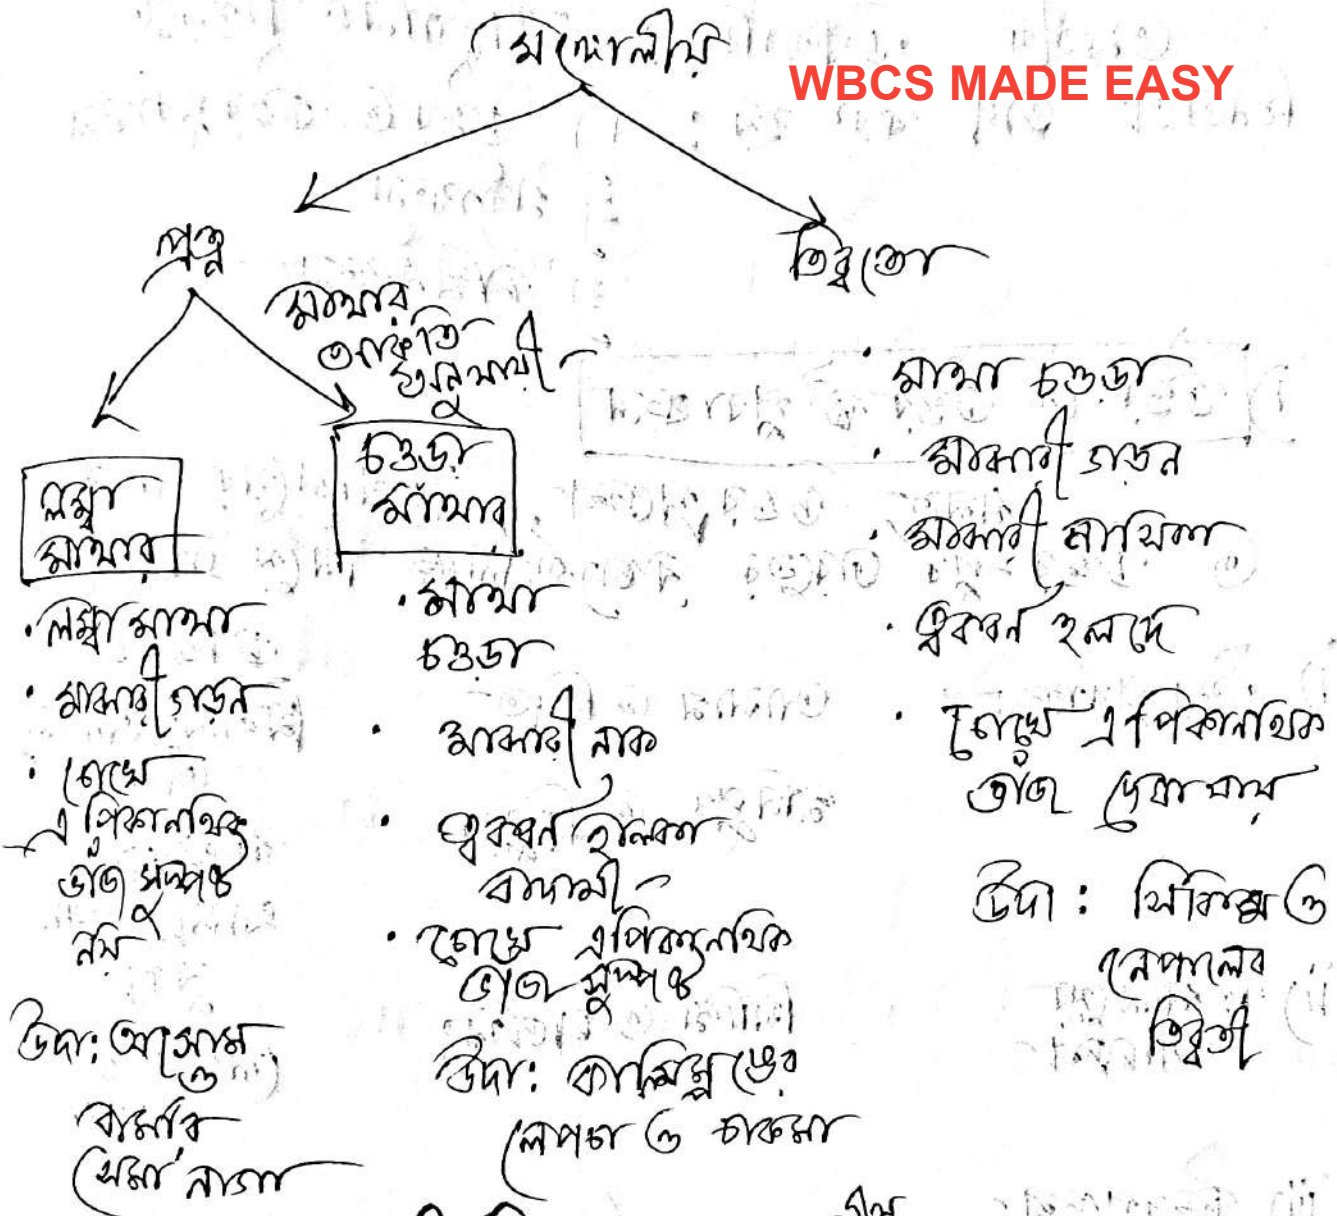 মঙ্গোলীয়
WBCS MADE EASY
প্রত্ন
তিব্বতো
মাথার
আকৃতি
অনুযায়ী
লম্বা
মাথার
• লম্বা মাথা
• মাঝারী গড়ন
• চোখে
এপিকানথিক
ভাঁজ সুস্পষ্ট
নয়
উদা: আসাম ও
বার্মার
সেমা নাগা
চওড়া
মাথার
• মাথা
চওড়া
• মাঝারী নাক
• ত্বকবর্ন হালকা
বাদামী
• চোখে এপিকানথিক
ভাঁজ সুস্পষ্ট
উদা: কালিম্পঙের
লেপচা ও চাকমা
• মাথা চওড়া
• মাঝারী গড়ন
• মাঝারী নাসিকা
• ত্বকবর্ন হলদে
• চোখে এপিকানথিক
ভাঁজ দেখা যায়
উদা: সিকিম ও
নেপালের
তিব্বতী